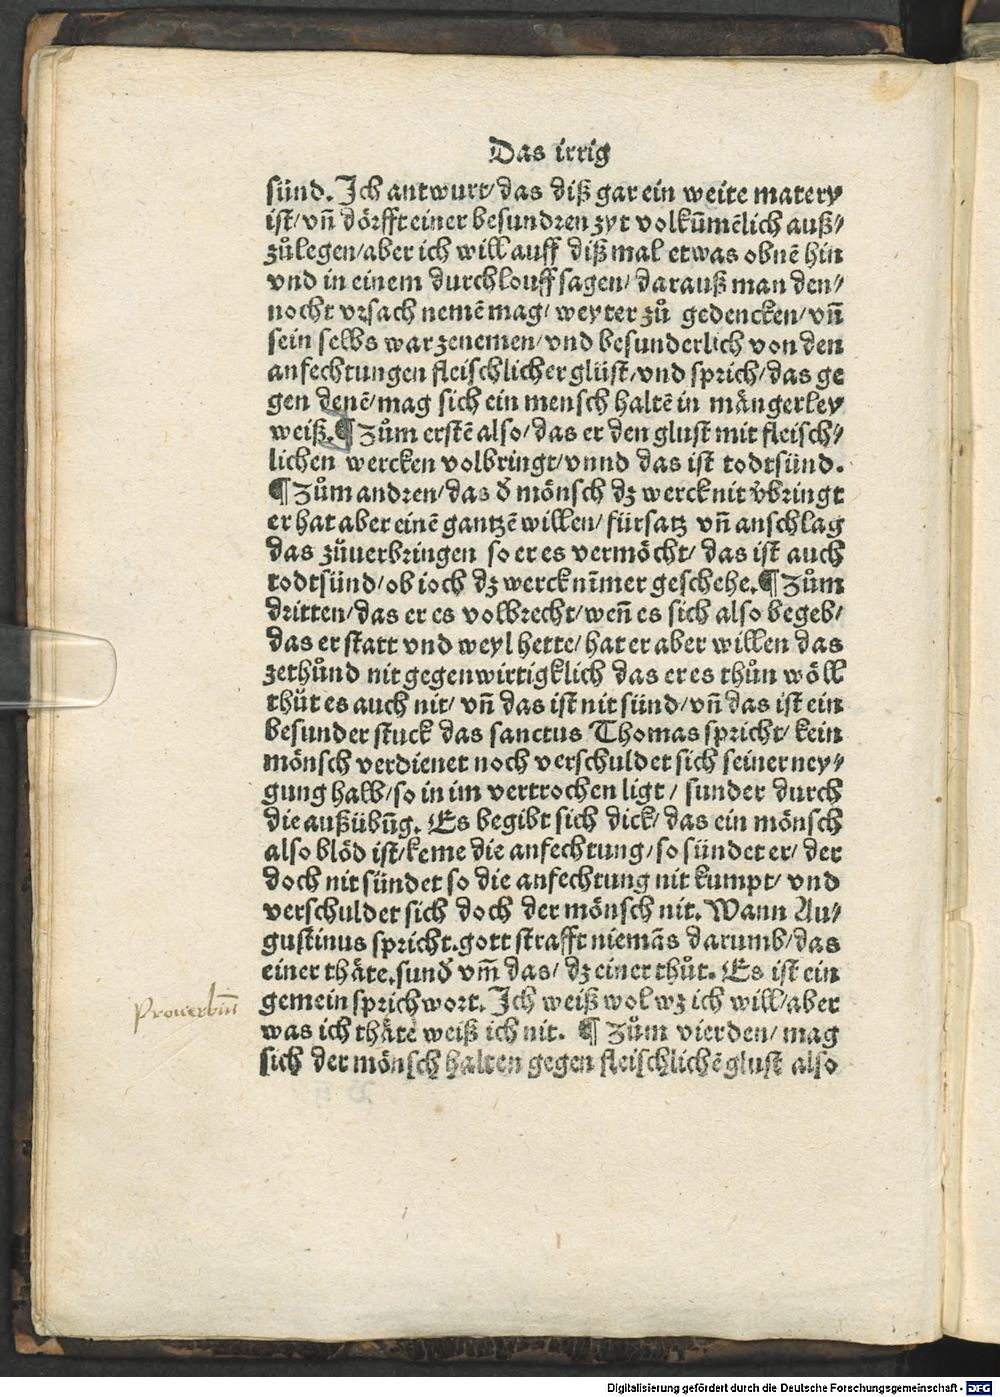 Das irrig
sünd. Ich antwurt/das diß gar ein weite matery
ist/vñ dörfft einer besundren zyt volkũmẽlich auß⸗
zůlegen/aber ich will auff diß mal etwas obnẽ hin
vnd in einem durchlouff sagen/darauß man den⸗
nocht vrsach nemẽ mag/weyter zů gedencken/vñ
sein selbs war zenemen/vnd besunderlich von den
anfechtungen fleischlicher glüst/vnd sprich/das ge
gen denẽ/mag sich ein mensch haltẽ in mängerley
weiß.¶ Zům erstẽ also/das er den glust mit fleisch⸗
lichen wercken volbringt/vnnd das ist todtsünd.
¶ Zům andren/das d̕ mönsch dz werck nit v̕bringt
er hat aber einẽ gantzẽ willen/fürsatz vñ anschlag
das zůuerbringen so er es vermöcht/das ist auch
todtsünd/ob ioch dz werck nĩmer geschehe.¶ Zům
dritten/das er es volbrecht/weñ es sich also begeb/
das er statt vnd weyl hette/hat er aber willen das
zethůnd nit gegenwirtigklich das er es thůn wöll
thůt es auch nit/vñ das ist nit sünd/vñ das ist ein
besunder stuck das sanctus Thomas spricht/kein
mönsch verdienet noch verschuldet sich seiner ney⸗
gung halb/so in im vertrochen ligt/sunder durch
die außübũg. Es begibt sich dick/das ein mönsch
also blöd ist/keme die anfechtung/so sündet er/der
doch nit sündet so die anfechtung nit kumpt/vnd
verschuldet sich doch der mönsch nit. Wann Au⸗
gustinus spricht.gott strafft niemãs darumb/das
einer thäte.sund̕ vm̃ das/dz einer thůt. Es ist ein
gemein sprichwort. Ich weiß wol wz ich will/aber
Prouerbiũ
was ich thäte weiß ich nit. ¶ Zům vierden/mag
sich der mönsch halten gegen fleischlichẽ glust also
Digitalisierung gefördert durch die Deutsche Forschungsgemeinschaft - DFG